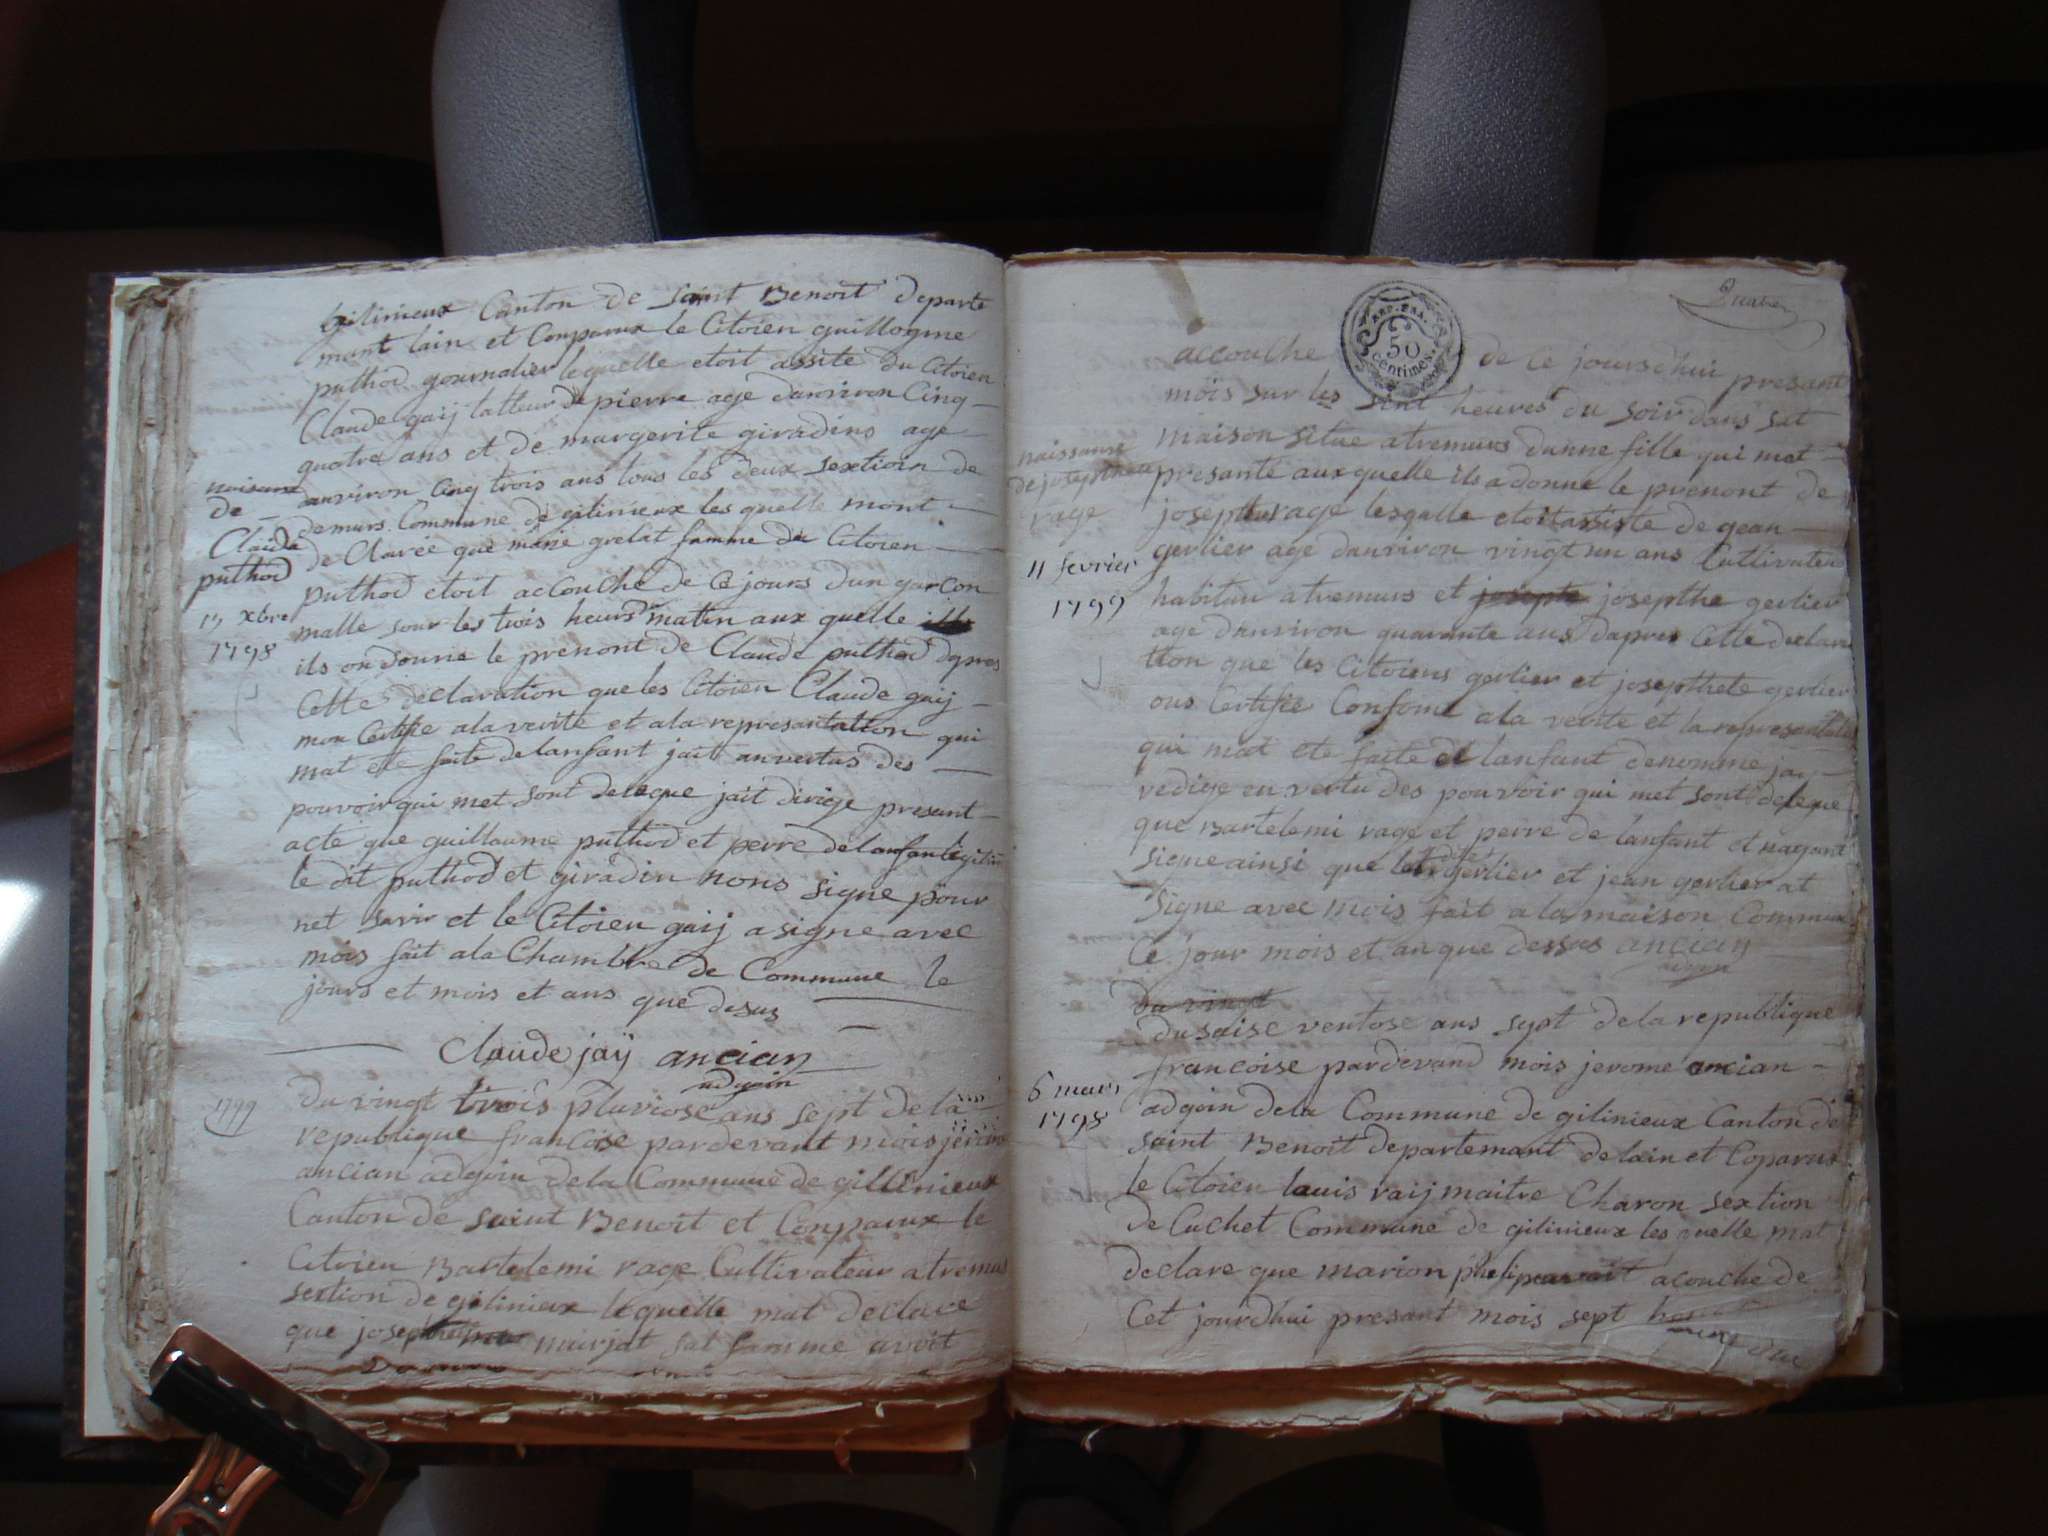 gilinieux Canton de saint Benoit departe
mant lain et Conparux le Citoien guillogme
puthod gournalier lequelle etoit assite du Citoien
Claude gaij tatteur de pierre age danviron Cinq
quatre ans et de margerite giradins age
anviron Cinq trois ans tous les deux sextioin de
demurs Commune de gilinieux les quelle mont
de Clarée que marie grelat famme du Citoien
puthod etoit accouché de ce jours dun garcon
malle sour les trois heurs matin aux quelle
ils on donne le prenont de Claude puthod dapres
Cette declaration que les Citoien Claude gaij
mon Certifie ala verite et ala represantation qui
mat ete faite de lanfant jait anvertus des
pouvoir qui met sont deleque jait dirige presant
acte que guillaume puthod et perre de lanfan
le dit puthod et giradin nons signe pour
net savir et le Citoien gaij a signe avec
mois fait ala Chambre de Commune le
jours et mois et ans que desus
Claude jaÿ ancian
adgoin
noisance
de
Claude
puthod
19 xbre
1798
1799
Du vingt trois pluviose ans sept de la
republique francoise pardevant mois
ancian adgoin de la Commune de gillinieux
Canton de saint Benoit et Conparux le
Citoien Bartelemi rage Cultivateur atremurs
sextion de gilinieux lequelle mat declare
que murjat sat famme avoit
accouche de ce jours dhui presant
REP. FRA.
50
centimes.
mois sur les sint heures du soir dans sat
maison situe atremurs dunne fille qui met
presanté aux quelle ils a donne le prenont de
rage lesqulle etoit assiste de gean
gerlier age danviron vingt un ans Cultivateur
habitan atremurs et josepthe gerlier
age danviron quarante ans dapres Cette declara
tion que les Citoiens gerlier et josepthete gerlier
ons Certifie Confome ala verite et la representation
qui mat ete faite de lanfant denomme jay
redige en vertu des pouvoir qui met sont deleque
que Bartelemi rage et perre de lanfant et nayant
signe ainsi que gerlier et jean gerlier at
signe avec mois fait a la maison Commune
Ce jour mois et an que dessus ancian
adgoin
naissance
rage
11 fevrier
1799
Du vingt
Du saise ventose ans sept de la republique
francoise pardevand mois jerome ancian
adgoin dela Commune de gilinieux Canton de
saint Benoit departemant de lain et Coparux
le Citoien lauis raij maitre Charon sextion
de Cuchet Commune de gilinieux les quelle mat
declare que marion acouche de
Cet jourdhui presant mois sept
6 mars
1798